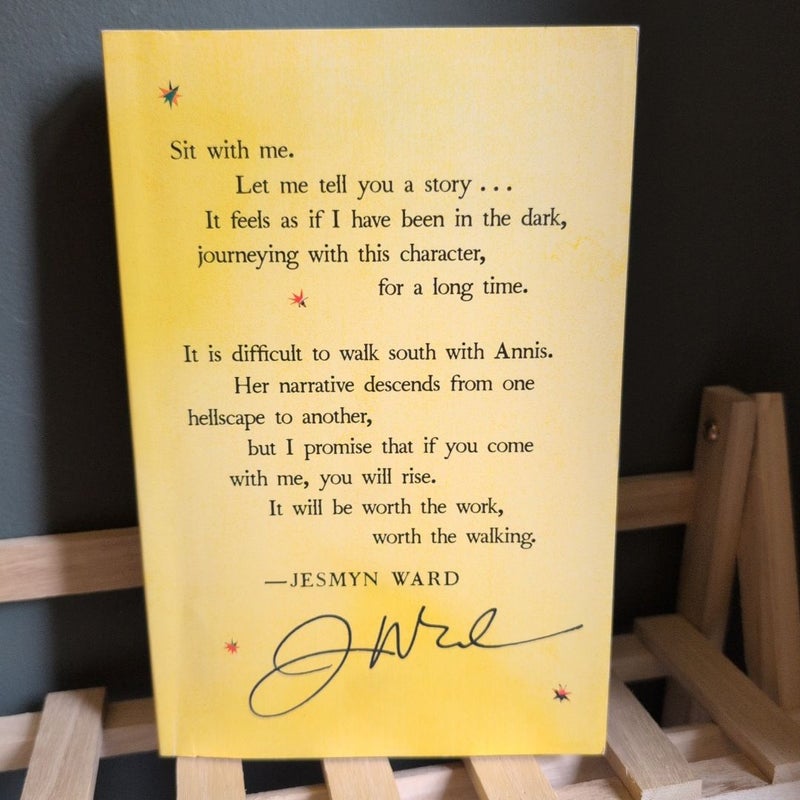 Sit with me.
Let me tell you a story . . .
It feels as if I have been in the dark,
journeying with this character,
for a long time.
It is difficult to walk south with Annis.
Her narrative descends from one
hellscape to another,
but I promise that if you come
with me, you will rise.
It will be worth the work,
worth the walking.
—JESMYN WARD
J Ward